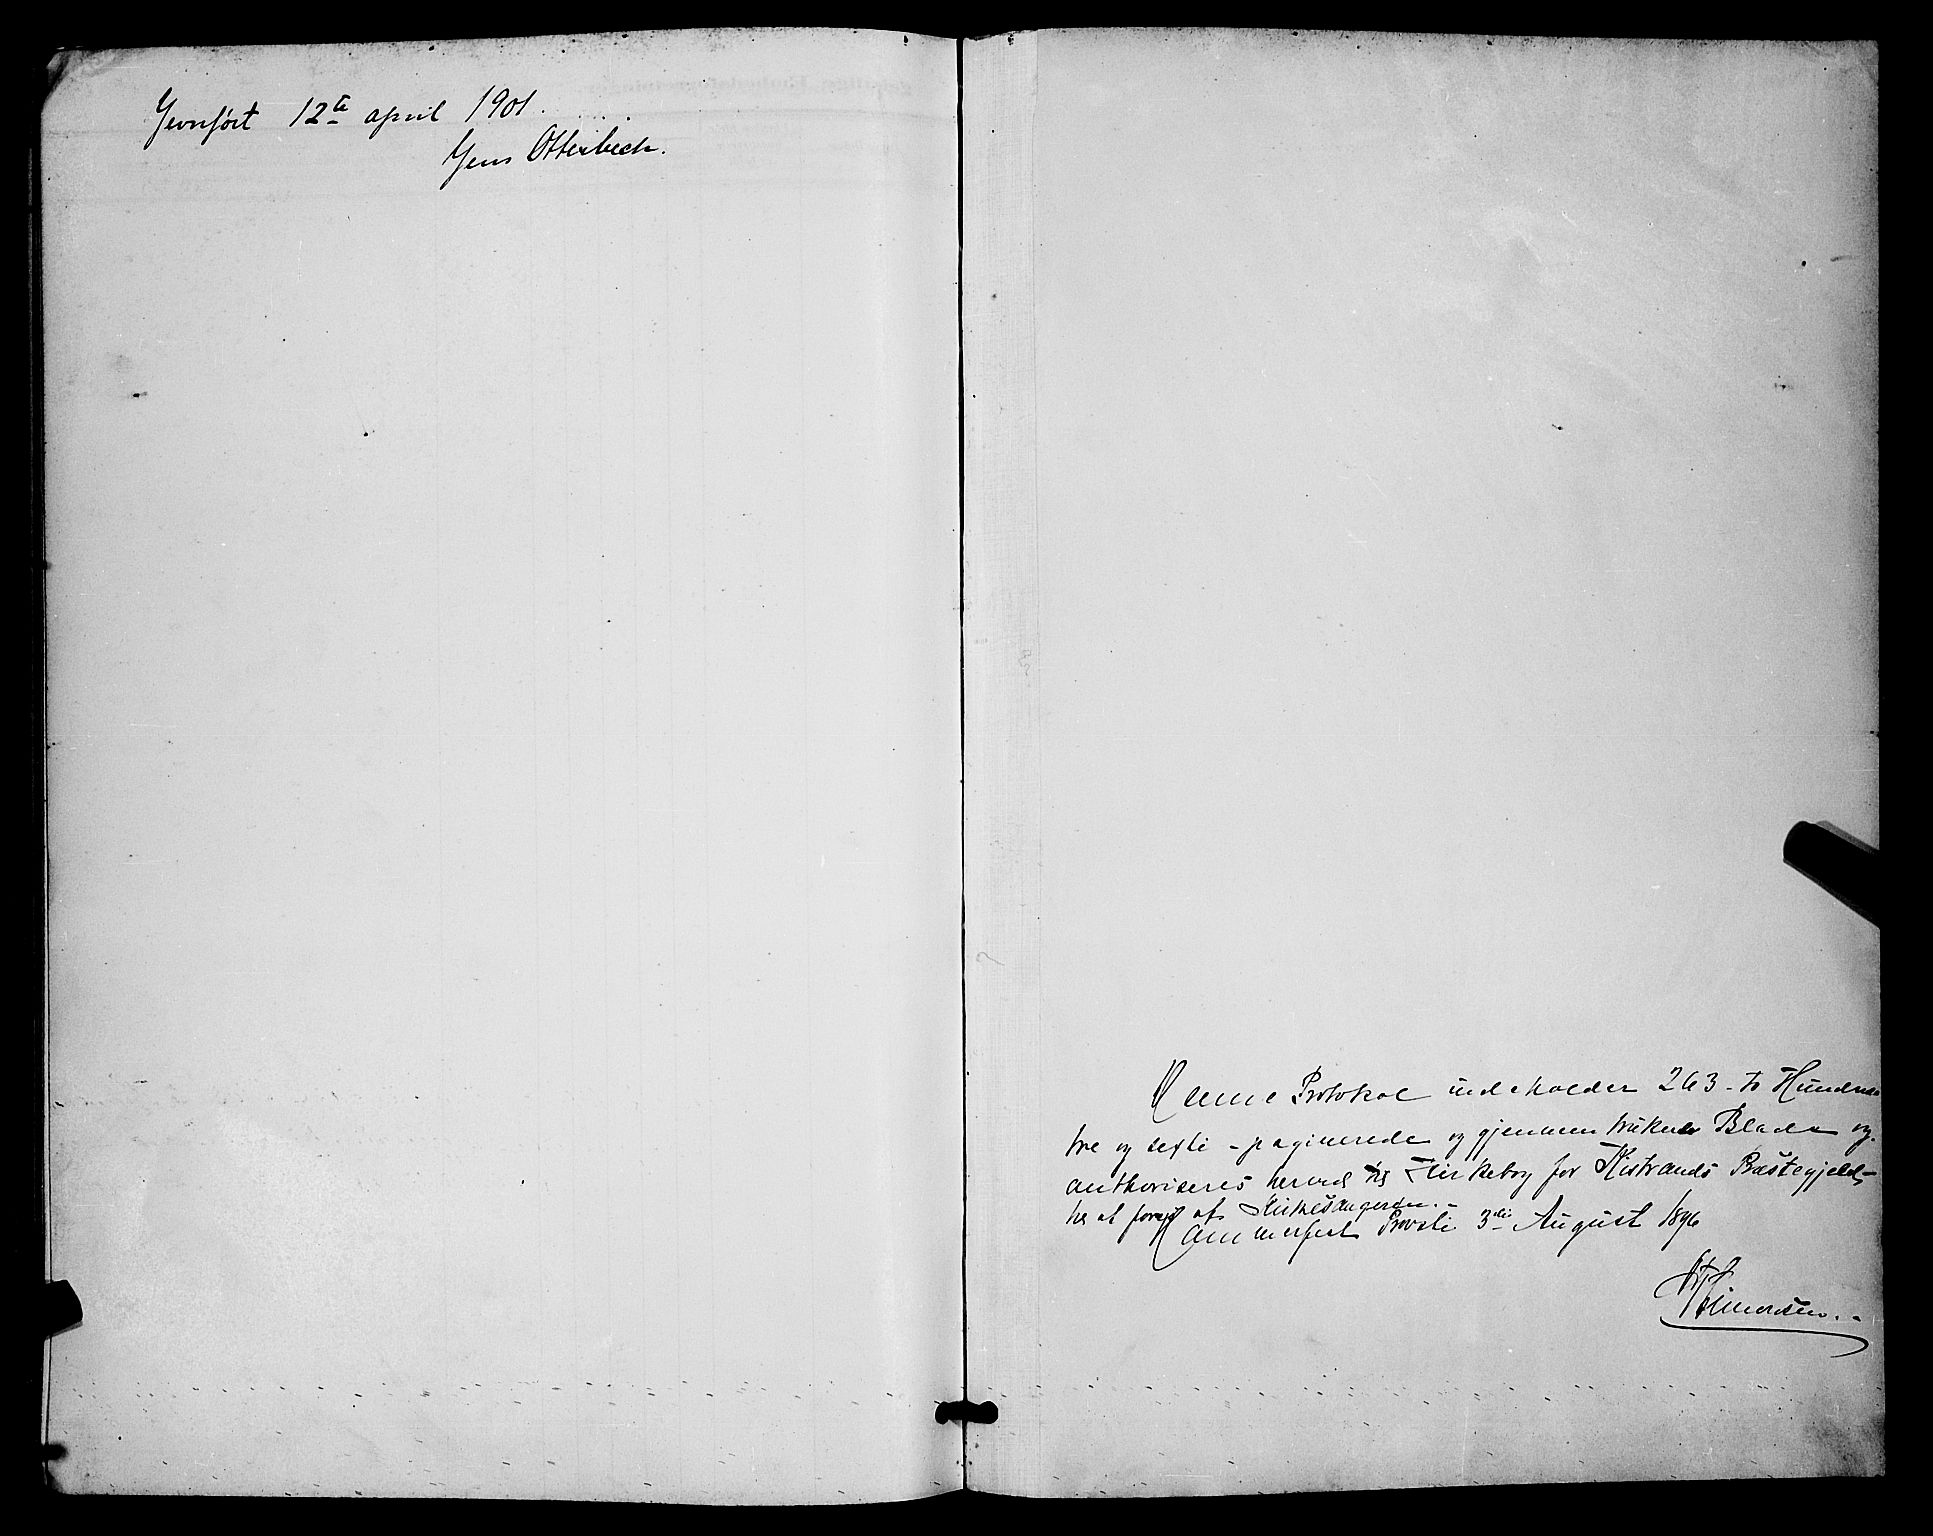 Jevnført 12te april 1901.
Jens Otterbech.
Denne Protokol indeholder 263 - to Hundrede
tre og sexti - paginerede og gjennemtrukne Blade og
authoriseres herved til Kirkebog for Kistrands Præstegjeld,
til at føres af Kirkesangeren. -
Hammerfest Provsti 3die August 1896
Simonsen. -